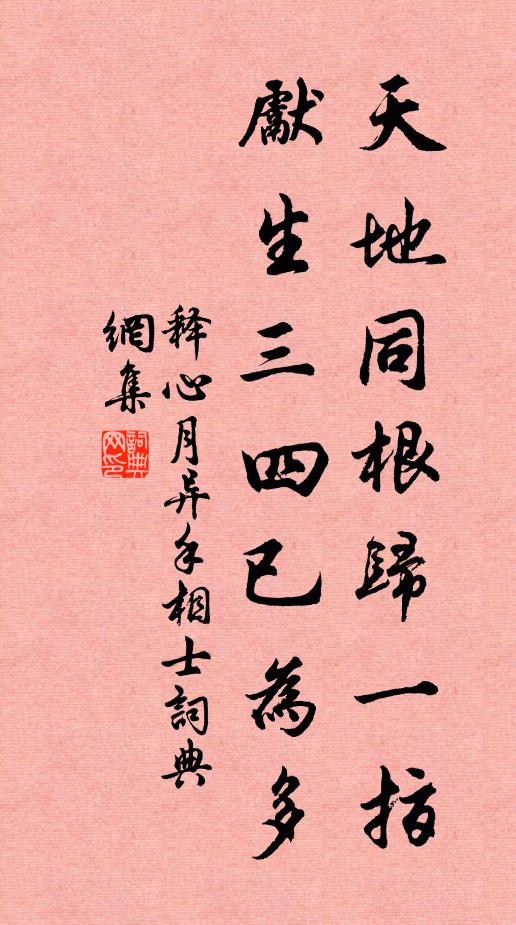 天地同根歸一指
獻生三四已為多
释心月异手相士詞典
網集
詞典網印